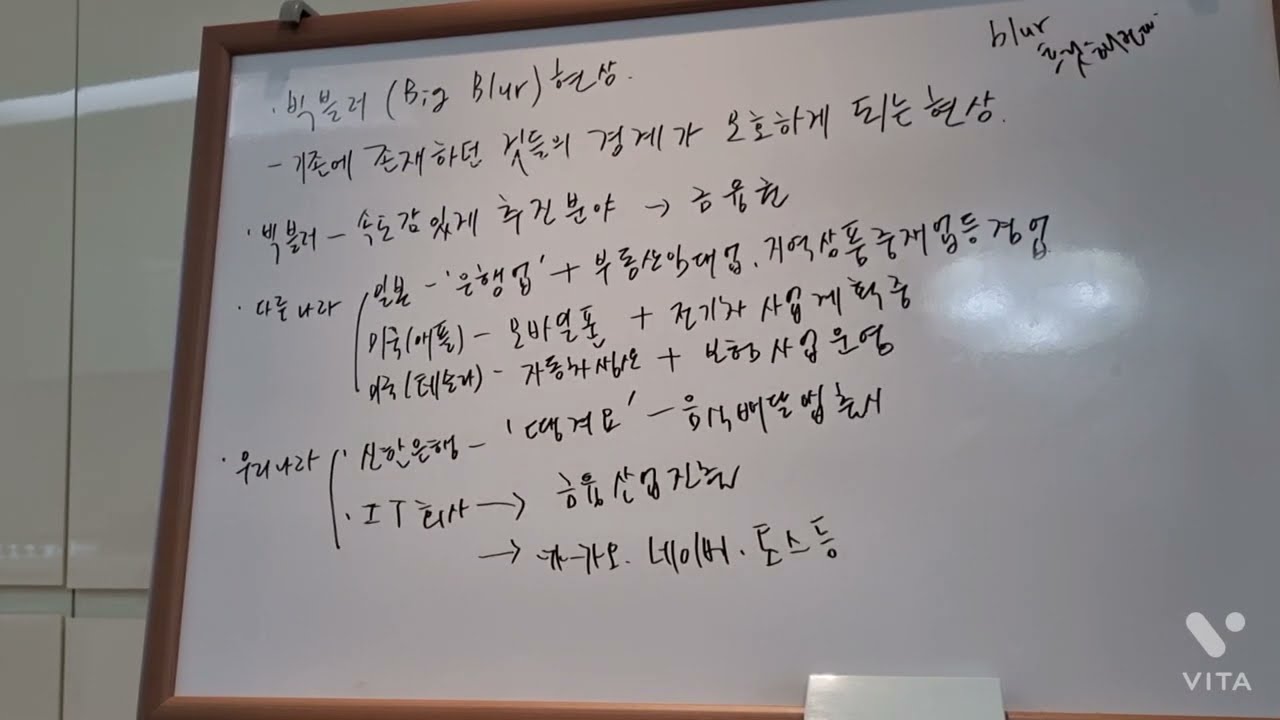 blur
흐릿해진다
· 빅블러 (Big Blur) 현상.
- 기존에 존재하던 것들의 경계가 모호하게 되는 현상.
· 빅블러 - 속도감 있게 추진분야 → 금융권
· 다른나라
일본 - '은행업' + 부동산임대업, 지역상품중재업등 겸업
미국(애플) - 모바일폰 + 전기차 사업계획중
미국(테슬라) - 자동차생산 + 보험사업운영
· 우리나라
· 신한은행 - '땡겨요' - 음식배달앱출시
· IT회사 → 금융산업진출
→ 카카오. 네이버. 토스등
VITA